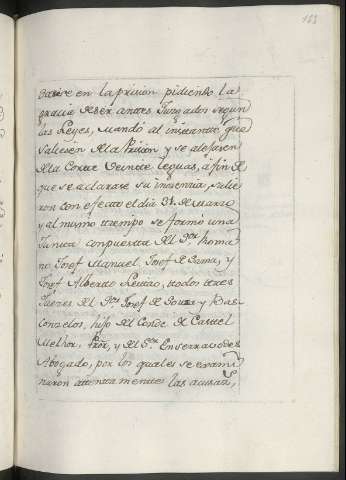 163
en la prision pidiendo la
gracia de ser antes Juzgados segun
las Leyes, mandó al instante que
saliesen de la Prision y se alejasen
de la Corte veinte leguas, á fin de
que se aclarase su inocencia, salie
ron con efecto el dia 31. de Marzo
y al mismo tiempo se formó una
Junta compuesta del Sor.
no Josef Manuel, Josef de Gama, y
Josef Alberto Leitao, todos tres
Jueces del Sor. Josef de Souza y Vas-
conzelos, hijo del Conde de Castel
Melhor, y del Sor.
Abogado, por los quales se exami
naron atentamente las acusas,